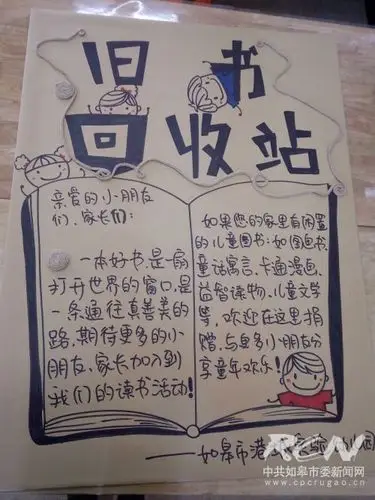 旧书
回收站
亲爱的小朋友
们、家长们:
一本好书,是一扇
打开世界的窗口,是
一条通往真善美的
路,期待更多的小
朋友、家长加入到
我们的读书活动!
如果您的家里有闲置
的儿童图书:如图画书、
童话寓言、卡通漫画、
益智读物、儿童文学
等,欢迎在这里捐
赠,与更多小朋友分
享童年欢乐!
——如皋市港
中共如皋市委新闻网
www.cpcrugao.cn